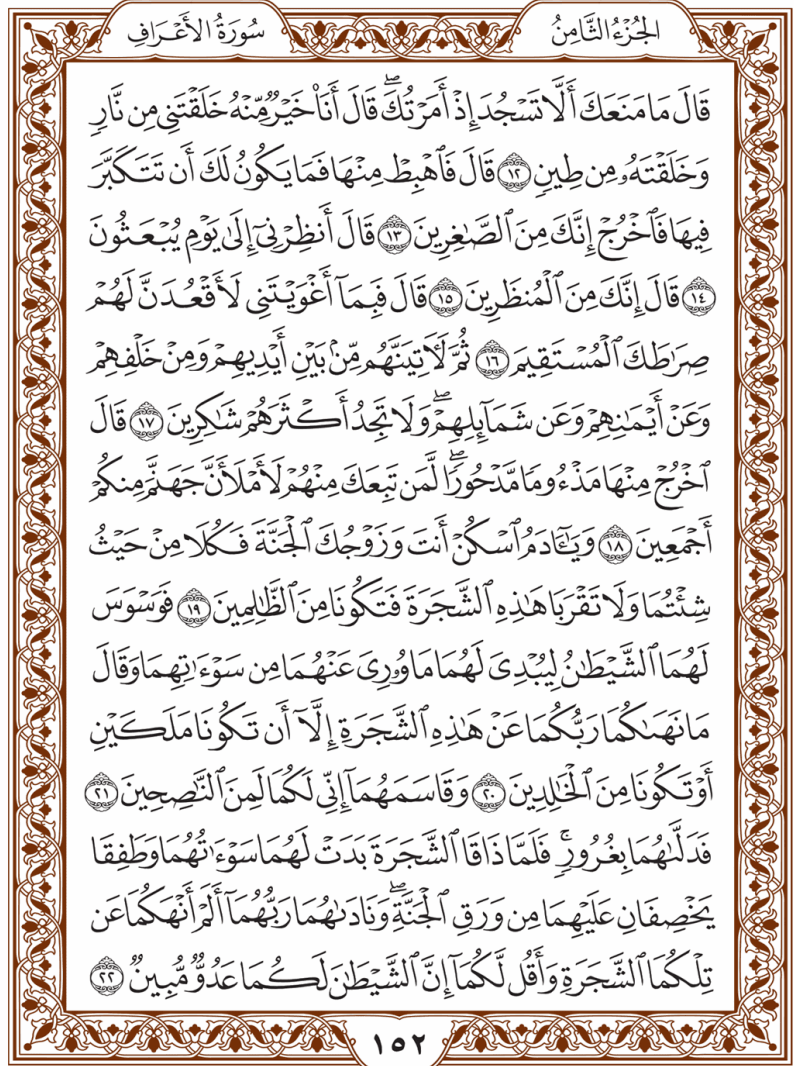 الجُزْءُ الثَّامِنُ
سُورَةُ الأَعْرَافِ
قَالَ مَا مَنَعَكَ أَلَّا تَسْجُدَ إِذْ أَمَرْتُكَۖ قَالَ أَنَا۠ خَيْرٌ مِّنْهُ خَلَقْتَنِى مِن نَّارٍ
وَخَلَقْتَهُۥ مِن طِينٍ ١٢ قَالَ فَٱهْبِطْ مِنْهَا فَمَا يَكُونُ لَكَ أَن تَتَكَبَّرَ
فِيهَا فَٱخْرُجْ إِنَّكَ مِنَ ٱلصَّٰغِرِينَ ١٣ قَالَ أَنظِرْنِىٓ إِلَىٰ يَوْمِ يُبْعَثُونَ
١٤ قَالَ إِنَّكَ مِنَ ٱلْمُنظَرِينَ ١٥ قَالَ فَبِمَآ أَغْوَيْتَنِى لَأَقْعُدَنَّ لَهُمْ
صِرَٰطَكَ ٱلْمُسْتَقِيمَ ١٦ ثُمَّ لَـَٔاتِيَنَّهُم مِّنۢ بَيْنِ أَيْدِيهِمْ وَمِنْ خَلْفِهِمْ
وَعَنْ أَيْمَٰنِهِمْ وَعَن شَمَآئِلِهِمْۖ وَلَا تَجِدُ أَكْثَرَهُمْ شَٰكِرِينَ ١٧ قَالَ
ٱخْرُجْ مِنْهَا مَذْءُومًا مَّدْحُورًاۖ لَّمَن تَبِعَكَ مِنْهُمْ لَأَمْلَأَنَّ جَهَنَّمَ مِنكُمْ
أَجْمَعِينَ ١٨ وَيَٰٓـَٔادَمُ ٱسْكُنْ أَنتَ وَزَوْجُكَ ٱلْجَنَّةَ فَكُلَا مِنْ حَيْثُ
شِئْتُمَا وَلَا تَقْرَبَا هَٰذِهِ ٱلشَّجَرَةَ فَتَكُونَا مِنَ ٱلظَّٰلِمِينَ ١٩ فَوَسْوَسَ
لَهُمَا ٱلشَّيْطَٰنُ لِيُبْدِىَ لَهُمَا مَا وُۥرِىَ عَنْهُمَا مِن سَوْءَٰتِهِمَا وَقَالَ
مَا نَهَىٰكُمَا رَبُّكُمَا عَنْ هَٰذِهِ ٱلشَّجَرَةِ إِلَّآ أَن تَكُونَا مَلَكَيْنِ
أَوْ تَكُونَا مِنَ ٱلْخَٰلِدِينَ ٢٠ وَقَاسَمَهُمَآ إِنِّى لَكُمَا لَمِنَ ٱلنَّٰصِحِينَ ٢١
فَدَلَّىٰهُمَا بِغُرُورٍۚ فَلَمَّا ذَاقَا ٱلشَّجَرَةَ بَدَتْ لَهُمَا سَوْءَٰتُهُمَا وَطَفِقَا
يَخْصِفَانِ عَلَيْهِمَا مِن وَرَقِ ٱلْجَنَّةِۖ وَنَادَىٰهُمَا رَبُّهُمَآ أَلَمْ أَنْهَكُمَا عَن
تِلْكُمَا ٱلشَّجَرَةِ وَأَقُل لَّكُمَآ إِنَّ ٱلشَّيْطَٰنَ لَكُمَا عَدُوٌّ مُّبِينٌ ٢٢
١٥٢